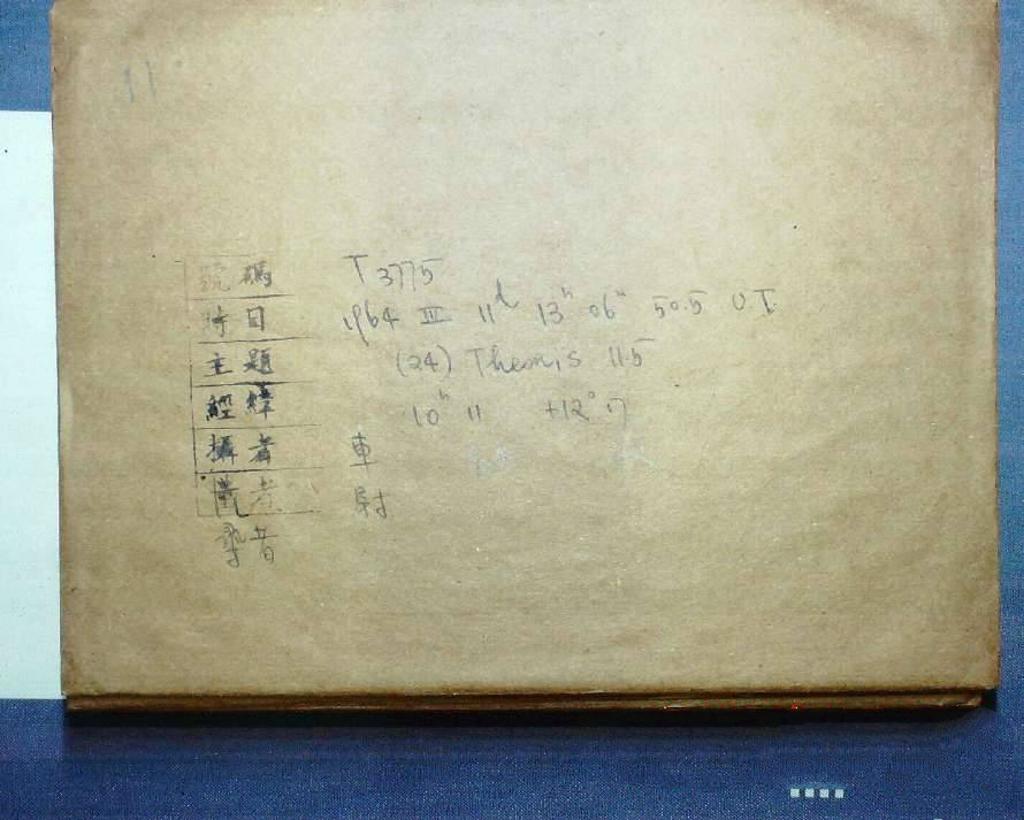 11
號碼 T 3775
時日 1964 III 11d 13h 06m 50.5 U T.
主題 (24) Themis 11.5
經緯 10h 11 +12° 17
攝者 車
者 尉
者